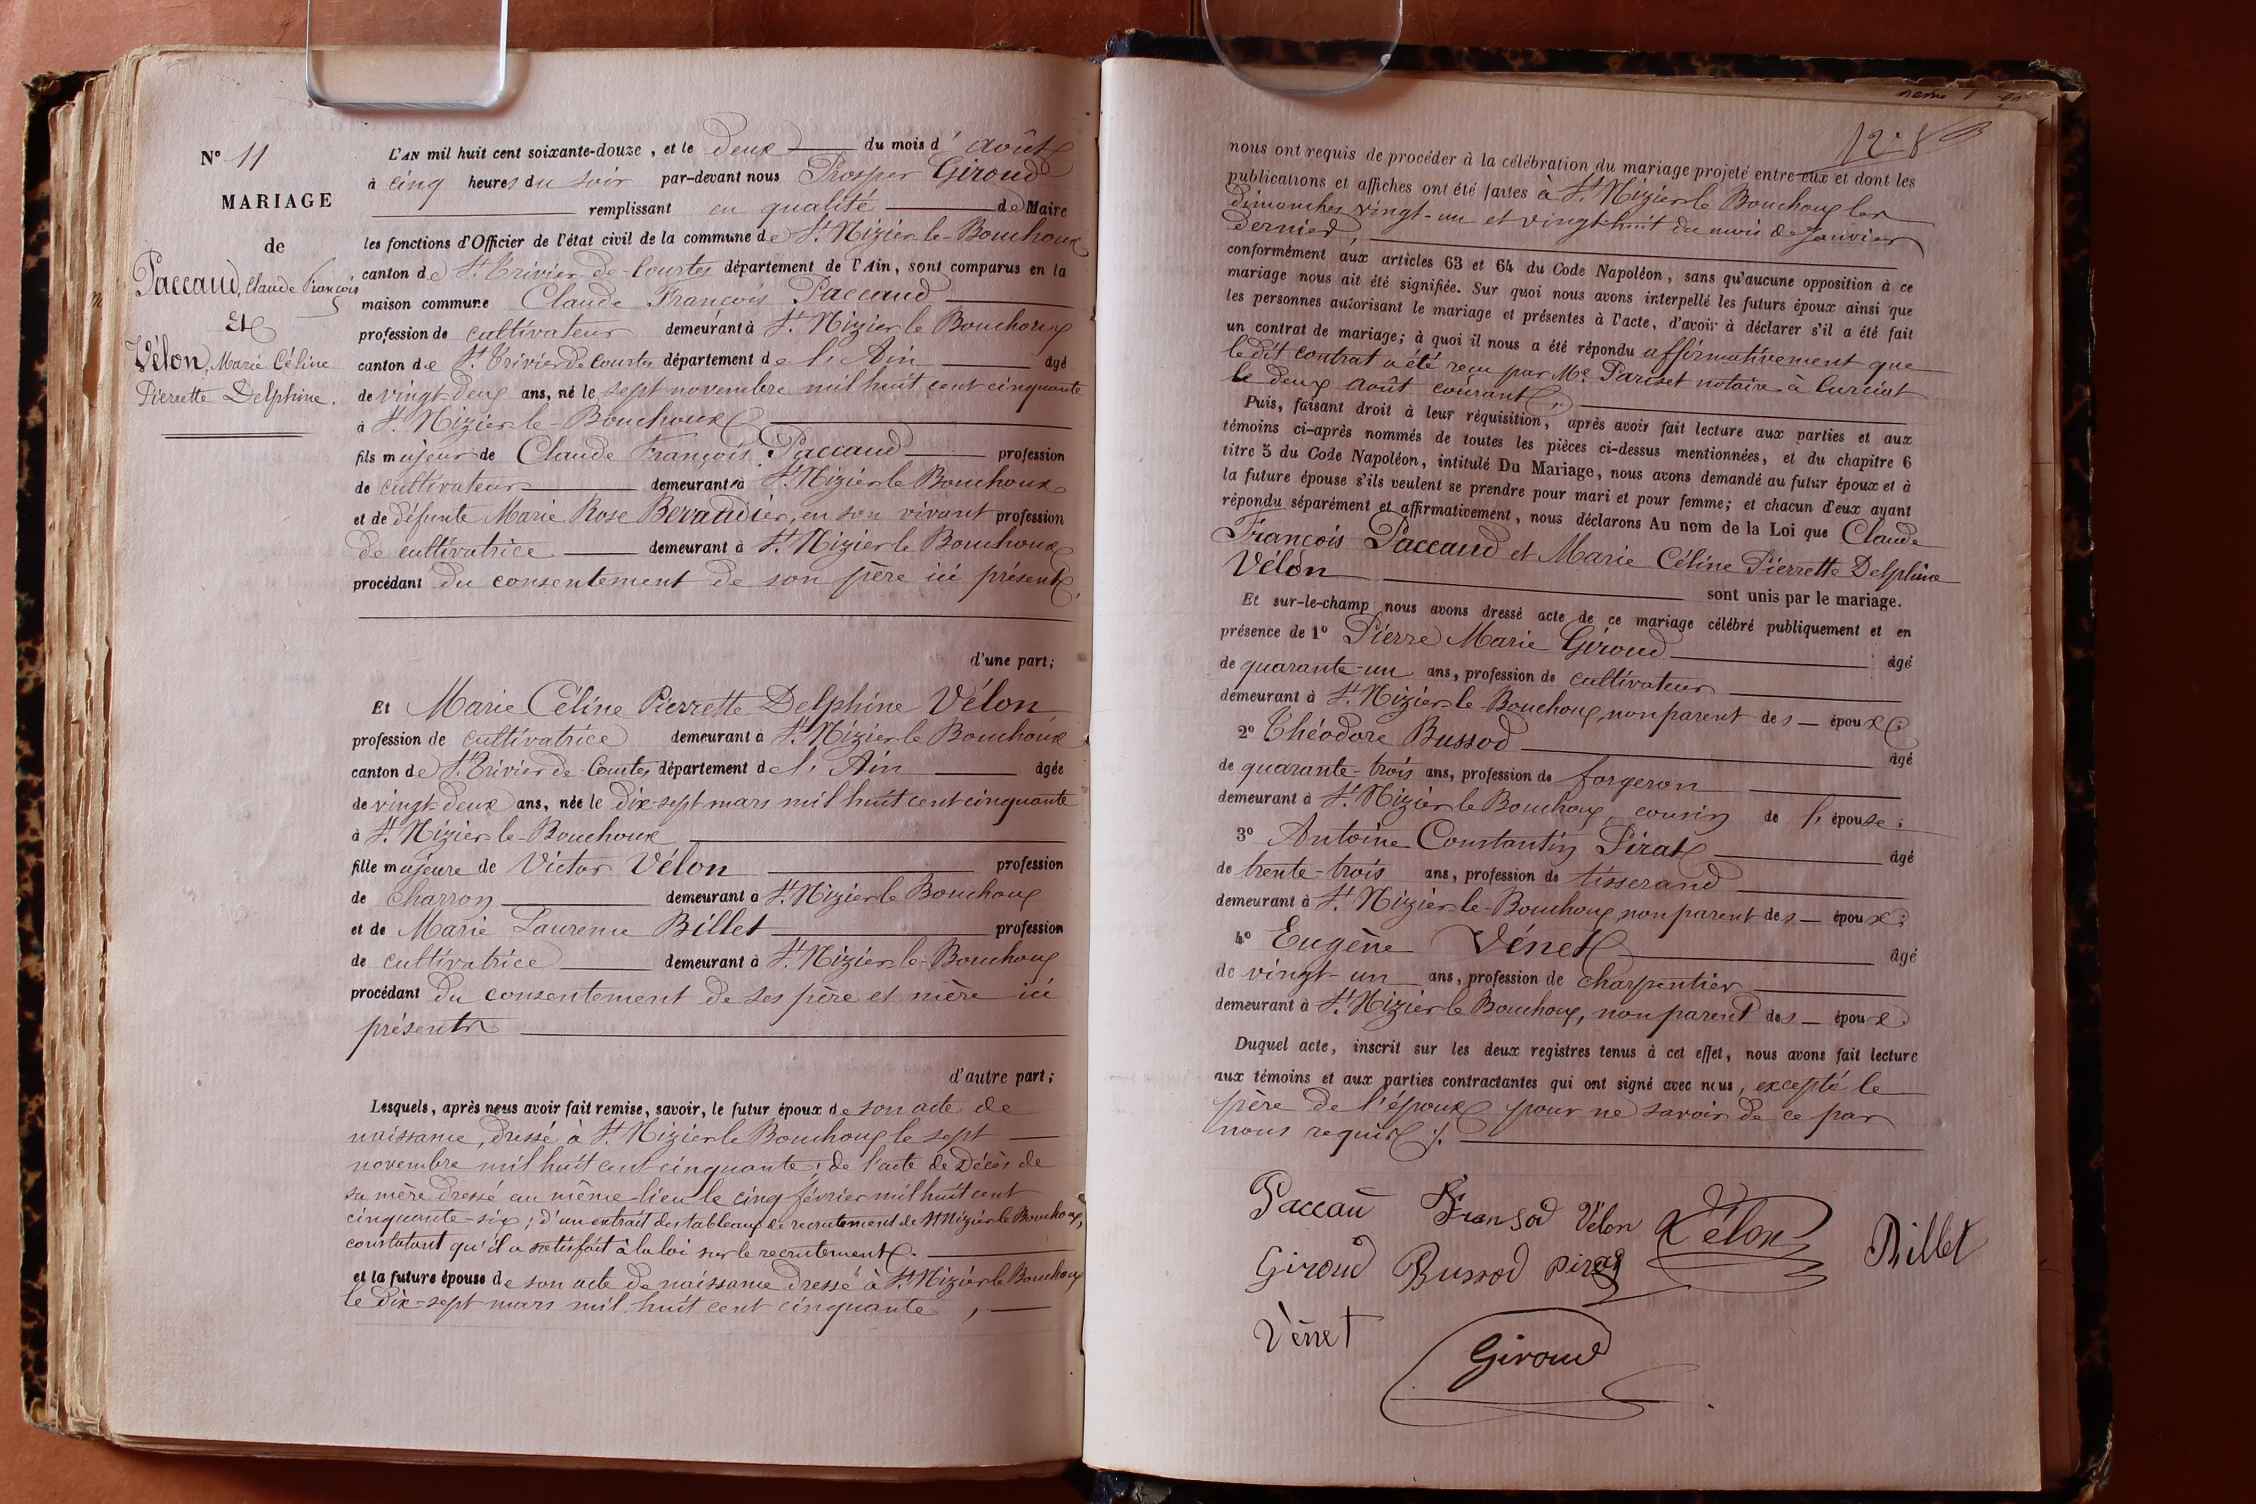 N° 11
MARIAGE
de
Paccaud, Claude François
Et
Vélon, Marie Céline
Pierrette Delphine.
L'AN mil huit cent soixante-douze, et le deux du mois d'août
à cinq heures du soir par-devant nous Prosper Giroud
remplissant en qualité de Maire
les fonctions d'Officier de l'état civil de la commune de St Nizier-le-Bouchoux
canton de St Trivier-de-Courtes département de l'Ain, sont comparus en la
maison commune Claude François Paccaud
profession de cultivateur demeurant à St Nizier le Bouchoux
canton de St Trivier de Courtes département de l'Ain âgé
de vingt-deux ans, né le sept novembre mil huit cent cinquante
à St Nizier-le-Bouchoux
fils majeur de Claude François Paccaud profession
de cultivateur demeurant à St Nizier le Bouchoux
et de défunte Marie Rose Bevaudier, en son vivant profession
de cultivatrice demeurant à St Nizier le Bouchoux
procédant du consentement de son père ici présent,
d'une part;
Et Marie Céline Pierrette Delphine Vélon
profession de cultivatrice demeurant à St Nizier le Bouchoux
canton de St Trivier de Courtes département de l'Ain âgée
de vingt-deux ans, née le dix-sept mars mil huit cent cinquante
à St Nizier-le-Bouchoux
fille majeure de Victor Vélon profession
de charron demeurant à St Nizier le Bouchoux
et de Marie Laurence Billet profession
de cultivatrice demeurant à St Nizier-le-Bouchoux
procédant du consentement de ses père et mère ici
présents
d'autre part;
Lesquels, après nous avoir fait remise, savoir, le futur époux de son acte de
naissance, dressé à St Nizier le Bouchoux le sept
novembre mil huit cent cinquante; de l'acte de décès de
sa mère dressé au même lieu le cinq février mil huit cent
cinquante-six; d'un extrait des tableaux de recrutement de St Nizier le Bouchoux,
constatant qu'il a satisfait à la loi sur le recrutement.
et la future épouse de son acte de naissance dressé à St Nizier le Bouchoux
le dix-sept mars mil huit cent cinquante,
12e
nous ont requis de procéder à la célébration du mariage projeté entre eux et dont les
publications et affiches ont été faites à St Nizier le Bouchoux les
dimanches vingt-un et vingt-huit du mois de janvier
dernier,
conformément aux articles 63 et 64 du Code Napoléon, sans qu'aucune opposition à ce
mariage nous ait été signifiée. Sur quoi nous avons interpellé les futurs époux ainsi que
les personnes autorisant le mariage et présentes à l'acte, d'avoir à déclarer s'il a été fait
un contrat de mariage; à quoi il nous a été répondu affirmativement que
le dit contrat a été reçu par Me Pariset notaire à Curciat
le deux août courant.
Puis, faisant droit à leur réquisition, après avoir fait lecture aux parties et aux
témoins ci-après nommés de toutes les pièces ci-dessus mentionnées, et du chapitre 6
titre 5 du Code Napoléon, intitulé Du Mariage, nous avons demandé au futur époux et à
la future épouse s'ils veulent se prendre pour mari et pour femme; et chacun d'eux ayant
répondu séparément et affirmativement, nous déclarons Au nom de la Loi que Claude
François Paccaud et Marie Céline Pierrette Delphine
Vélon
sont unis par le mariage.
Et sur-le-champ nous avons dressé acte de ce mariage célébré publiquement et en
présence de 1° Pierre Marie Giroud âgé
de quarante-un ans, profession de cultivateur
demeurant à St Nizier-le-Bouchoux, non parent des époux;
2° Théodore Bussod âgé
de quarante-trois ans, profession de forgeron
demeurant à St Nizier le Bouchoux, cousin de l'épouse;
3° Antoine Constantin Pirat âgé
de trente-trois ans, profession de tisserand
demeurant à St Nizier-le-Bouchoux, non parent des époux;
4° Eugène Vénet âgé
de vingt-un ans, profession de charpentier
demeurant à St Nizier le Bouchoux, non parent des époux.
Duquel acte, inscrit sur les deux registres tenus à cet effet, nous avons fait lecture
aux témoins et aux parties contractantes qui ont signé avec nous, excepté le
père de l'époux pour ne savoir de ce par
nous requis ./.
Paccau Vélon Vélon Billet
Giroud Bussod Pirat
Vénet
Giroud